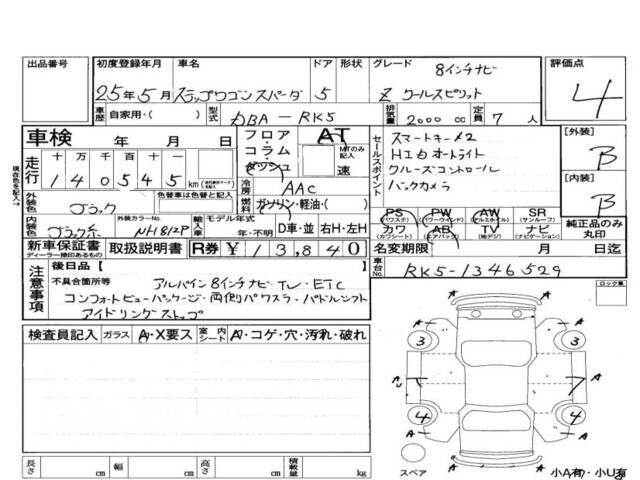 出品番号 初度登録年月 車名 ドア 形状 グレード 8インチナビ 評価点
25年5月 ステップワゴンスパーダ 5 Z クールスピリット 4
車歴 自家用・( ) 型式 DBA-RK5 排気量 2000 cc 定員 7 人
車検 年 月 日 フロア・コラム・ダッシュ AT MTのみ記入 速
セールスポイント スマートキー×2
HIDオートライト
クルーズコントロール
バックカメラ
[外装] B
[内装] B
現在色を記入→
走行 十 万 千 百 十 一
140545 km
冷房 AAC
外装色 ブラック 色替車は色替と記入 燃料 ガソリン・軽油・( )
内装色 ブラック系 外装カラーNo. NH812P 輸入車 モデル年式 年・不明 D車・並 右H・左H
PS (パワステ) PW (パワーウインド) AW (アルミホイル) SR (サンルーフ)
カワ (カワシート) AB (エアバック) TV (地デジ) ナビ (ナビゲーション) 純正品のみ丸印
新車保証書 ディーラー捺印あるもの 取扱説明書 R券 ¥13,840 名変期限 月 日迄
車台No. RK5-1346529
注意事項 後日品【 】
不具合箇所等 アルパイン8インチナビ・TV・ETC
コンフォートビューパッケージ・両側パワスラ・パドルシフト
アイドリングストップ
ロック車
検査員記入 ガラス A・X要ス 室内シート A・コゲ・穴・汚れ・破れ
A A
3 3
A A
4 4
A A
スペア 小A有・小U有
長さ cm 幅 cm 高さ cm 積載量 kg